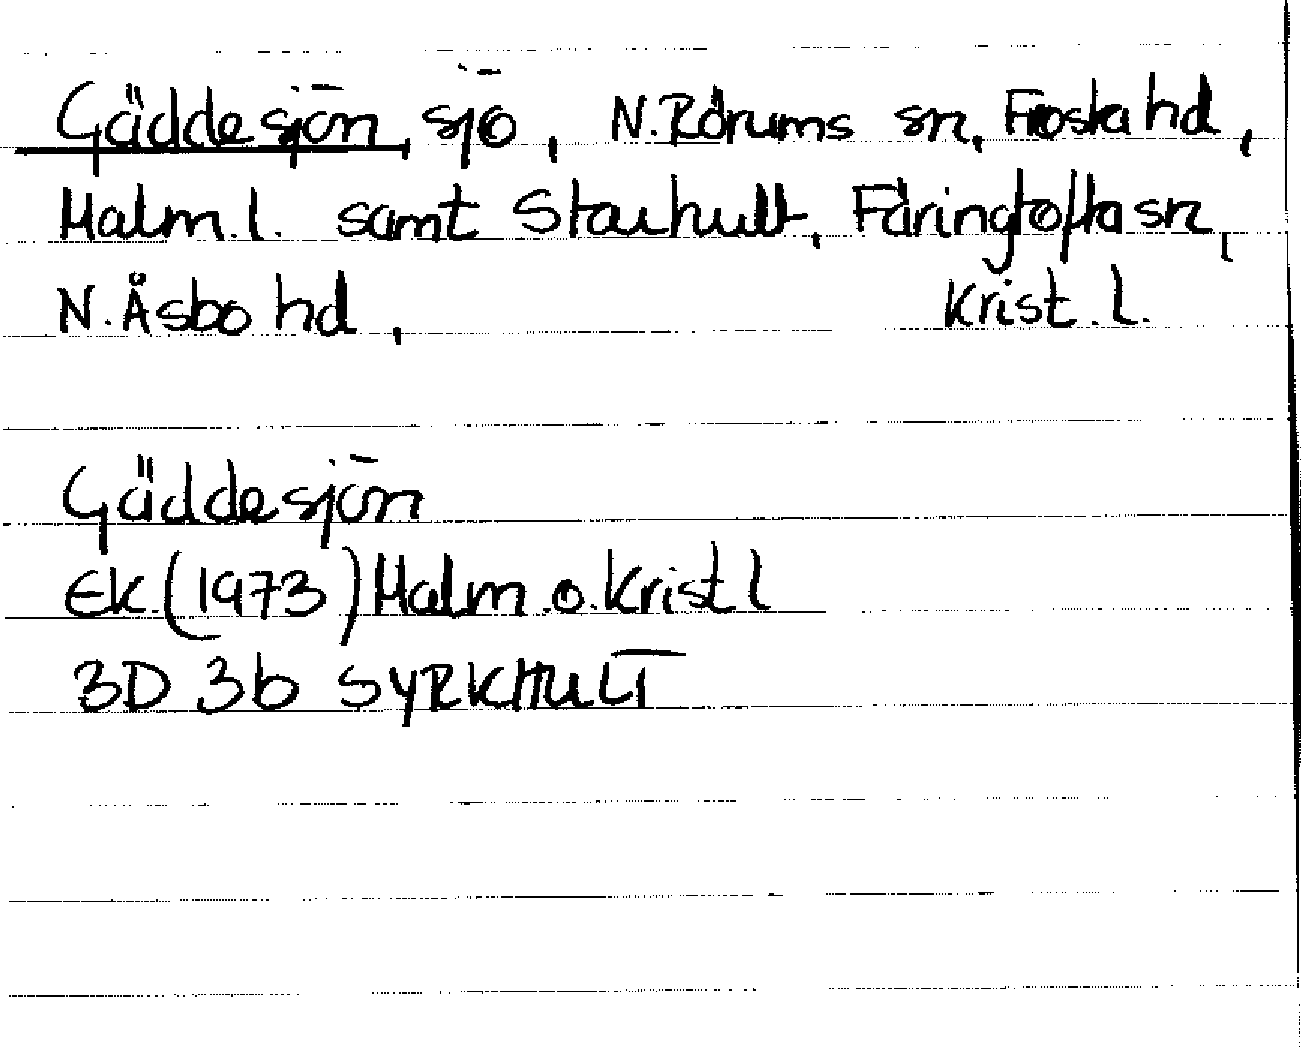 Gäddesjön, sjö, N. Rörums sn, Frosta hd,
Malm. l. samt Starhult, Färingtofta sn,
N. Åsbo hd, Krist. l.
Gäddesjön
Ek. (1973) Malm. o. Krist l
3D 3b SYRKHULT